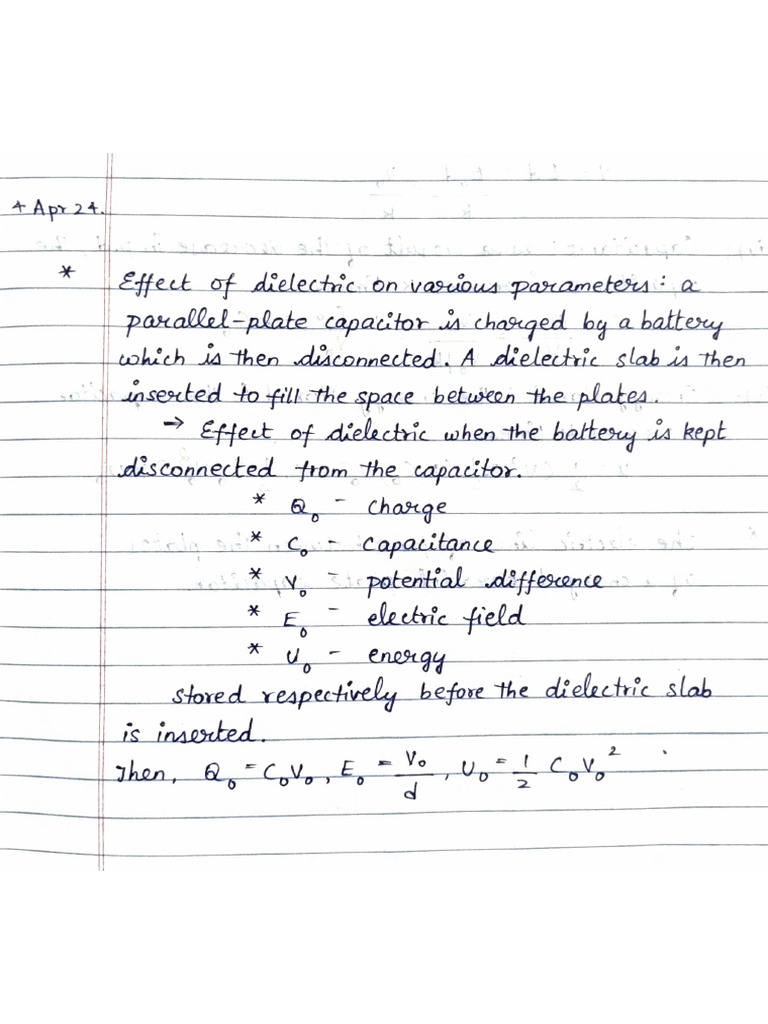 4 Apr 24.
* Effect of dielectric on various parameters : a
parallel-plate capacitor is charged by a battery
which is then disconnected. A dielectric slab is then
inserted to fill the space between the plates.
→ Effect of dielectric when the battery is kept
disconnected from the capacitor.
* Q₀ - charge
* C₀ - capacitance
* V₀ - potential difference
* E₀ - electric field
* U₀ - energy
stored respectively before the dielectric slab
is inserted.
Then, Q₀ = C₀V₀, E₀ = V₀/d, U₀ = 1/2 C₀V₀²